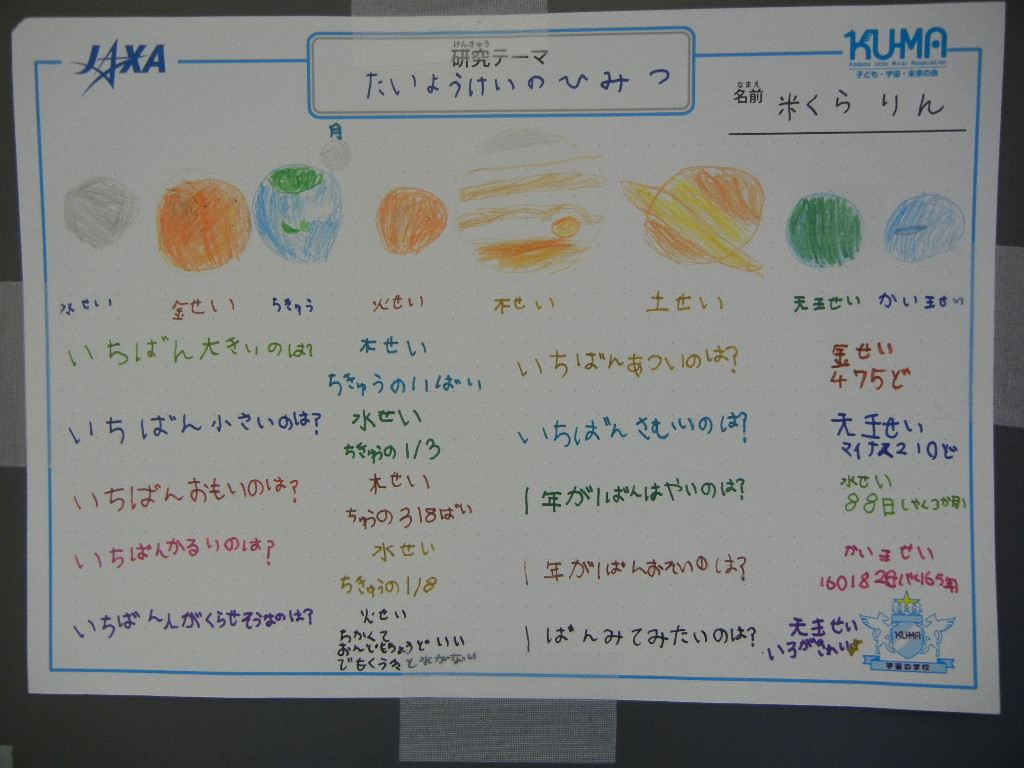 JAXA
けんきゅう
研究テーマ
たいようけいのひみつ
KU-MA
Kodomo Uchu Mirai Association
子ども・宇宙・未来の会
なまえ
名前
米くら りん
月
水せい
金せい
ちきゅう
火せい
木せい
土せい
天王せい
かい王せい
いちばん大きいのは?
木せい
ちきゅうの11ばい
いちばん小さいのは?
水せい
ちきゅうの1/3
いちばんおもいのは?
木せい
ちゅうの318ばい
いちばんかるいのは?
水せい
ちきゅうの1/8
いちばん人がくらせそうなのは?
火せい
ちかくて
おんどもちょうどいい
でもくう気と水がない
いちばんあついのは?
金せい
475ど
いちばんさむいのは?
天王せい
マイナス210ど
1年が1ばんはやいのは?
水せい
88日(やく3か月)
1年が1ばんおそいのは?
かい王せい
60182日(やく165年)
1ばんみてみたいのは?
天王せい
いろがきれい
KU-MA
宇宙の学校